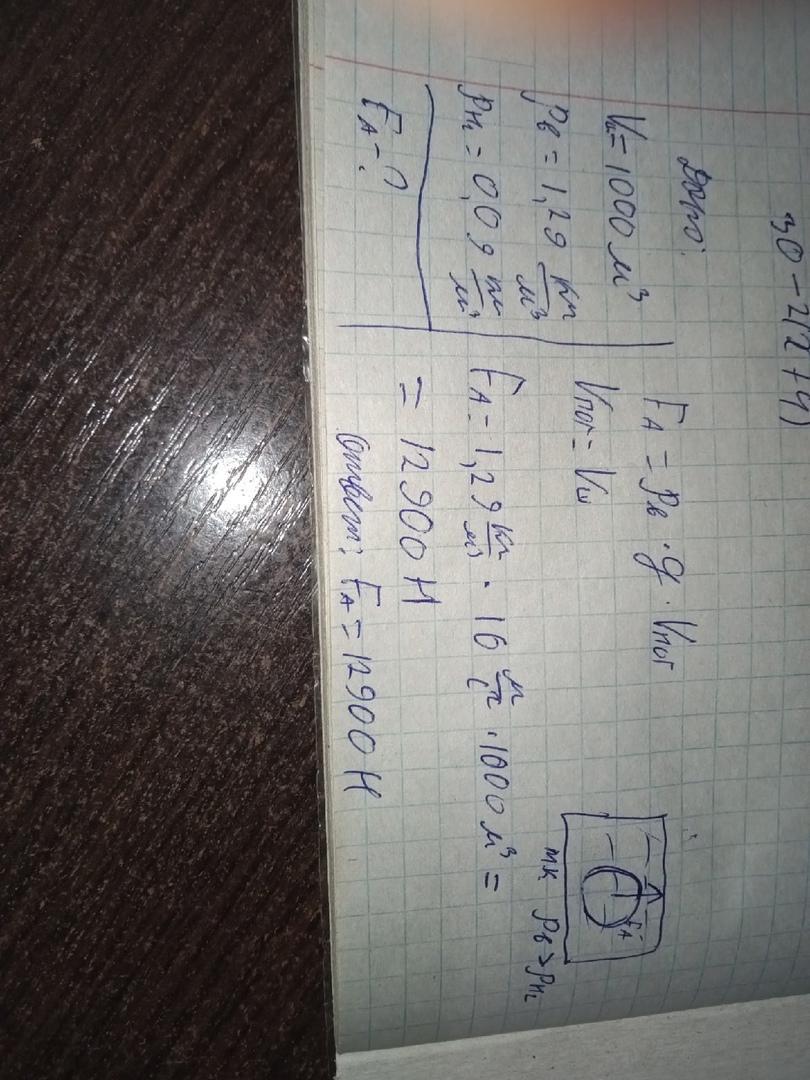 30-2(2+4)
Дано:
Vш=1000 м³
ρв = 1,29 кг/м³
ρн₂ = 0,09 кг/м³
FА-?
FА = ρв · g · Vпог
Vпог = Vш
FА = 1,29 кг/м³ · 10 м/с² · 1000 м³ =
= 12900 Н
Ответ: FА = 12900 Н
FА
тк ρв > ρн₂